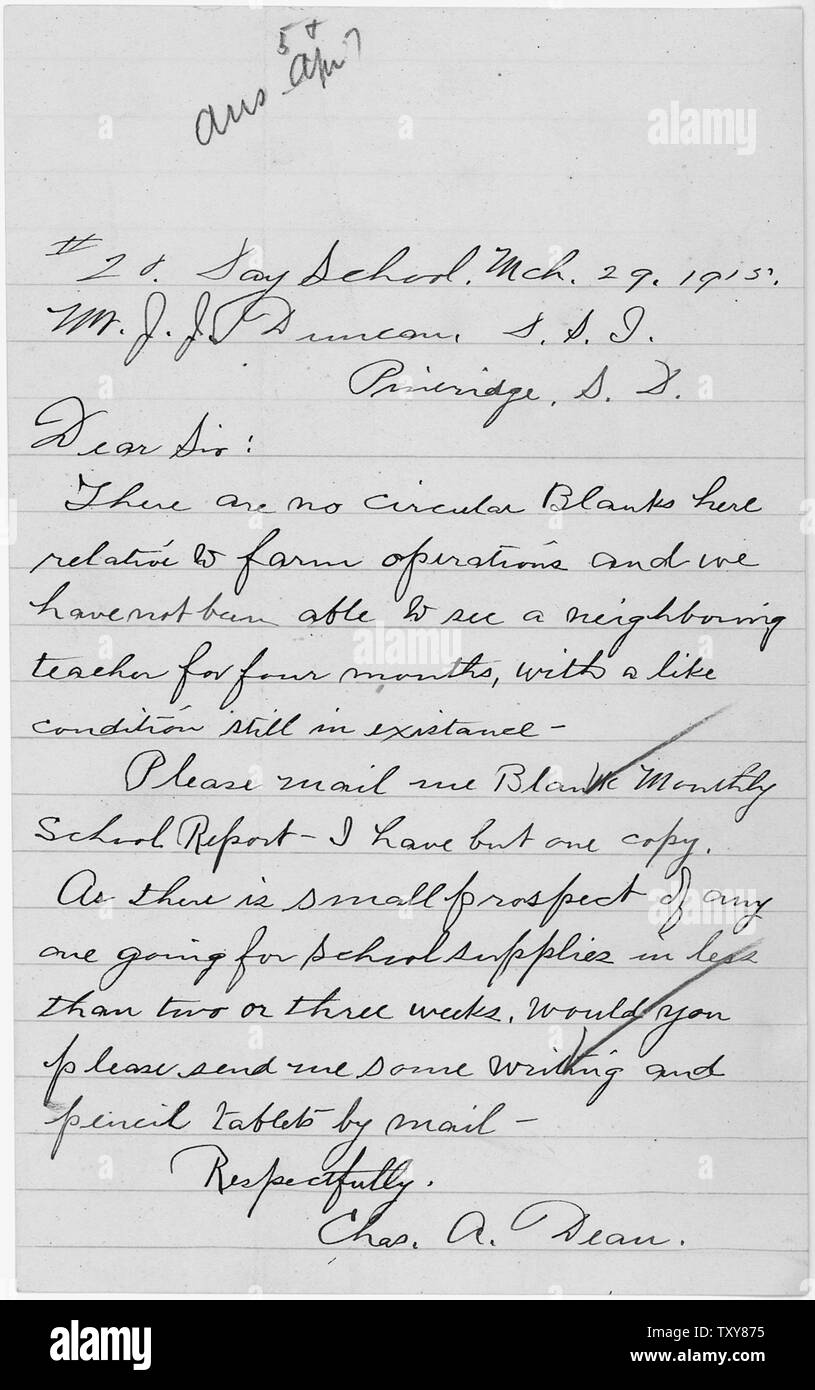 ans Apr
# 28. Day School. Mch. 29. 1915.
Mr. J. J. Duncan. D. S. I.
Pineridge, S. D.
Dear Sir:
There are no circular Blanks here
relative to farm operations and we
have not been able to see a neighboring
teacher for four months, with a like
condition still in existance -
Please mail me Blank Monthly
School Report - I have but one copy.
As there is small prospect of any
one going for school supplies in less
than two or three weeks. Would you
please send me some writing and
pencil tablets by mail -
Respectfully.
Chas. A. Dean.
a alamy
alamy
a alamy
alamy
Image ID: TXY875
www.alamy.com